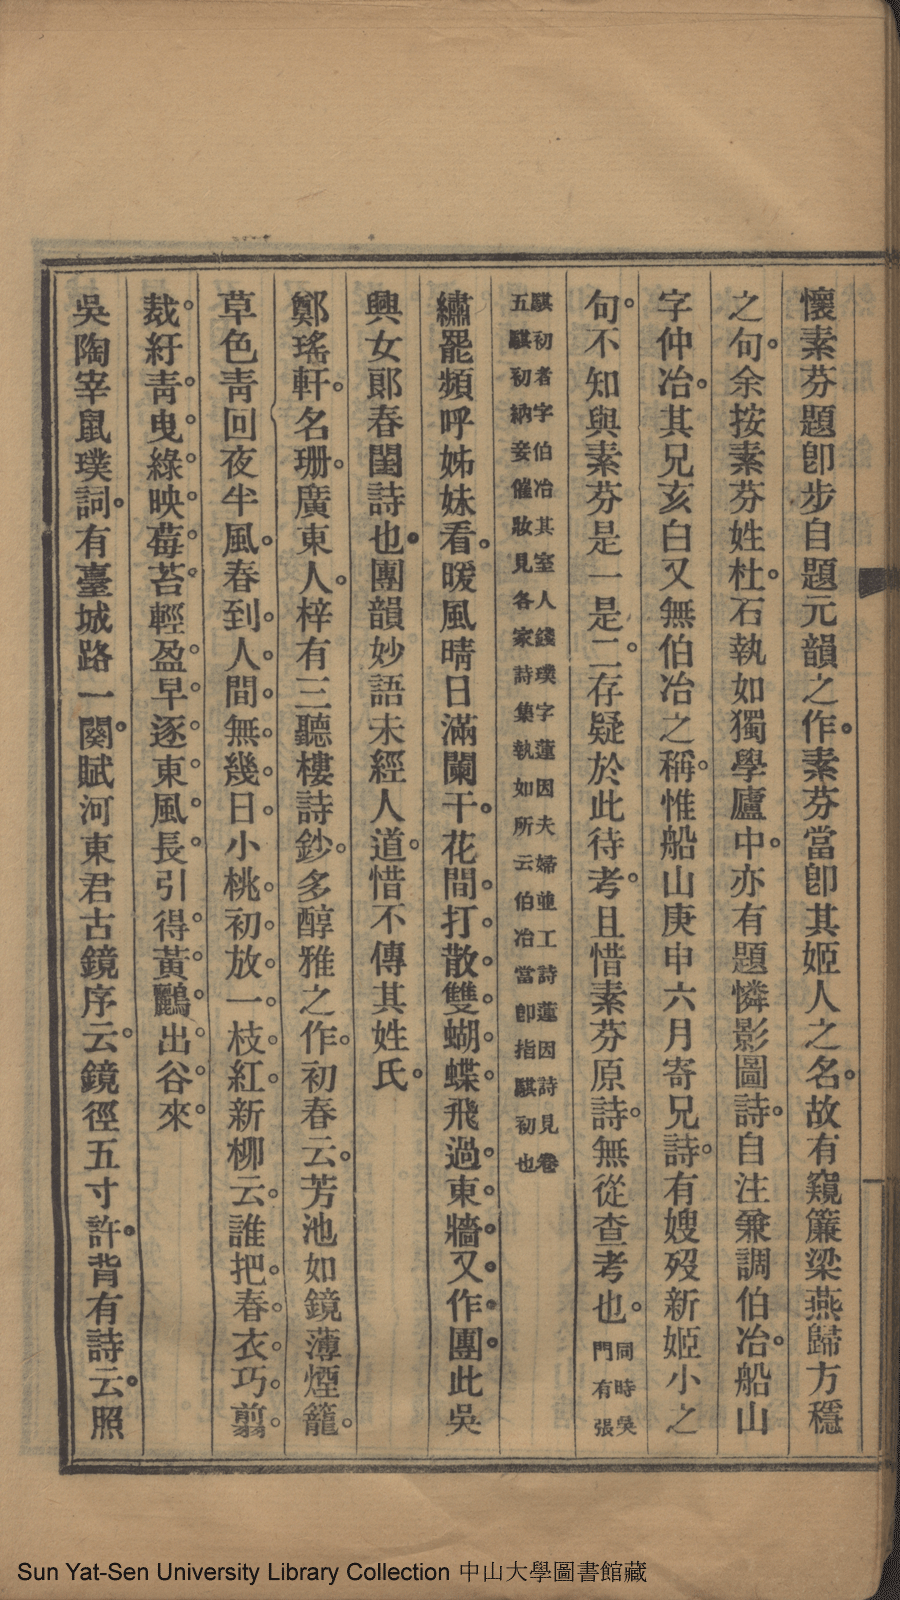 懷素芬題卽步自題元韻之作素芬當卽其姬人之名故有窺簾梁燕歸方穩
之句余按素芬姓杜石執如獨學廬中亦有題憐影圖詩自注兼調伯冶船山
字仲冶其兄亥白又無伯冶之稱惟船山庚申六月寄兄詩有嫂歿新姬小之
句不知與素芬是一是二存疑於此待考且惜素芬原詩無從查考也同時吳門有張
騏初者字伯冶其室人錢璞字蓮因夫婦並工詩蓮因詩見卷
五騏初納妾催妝見各家詩集執如所云伯冶當卽指騏初也
繡罷頻呼姊妹看暖風晴日滿闌干花間打散雙蝴蝶飛過東牆又作團此吳
興女郎春閨詩也團韻妙語未經人道惜不傳其姓氏
鄭瑤軒名珊廣東人梓有三聽樓詩鈔多醇雅之作初春云芳池如鏡薄煙籠
草色靑回夜半風春到人間無幾日小桃初放一枝紅新柳云誰把春衣巧翦
裁紆靑曳綠映莓苔輕盈早逐東風長引得黃鸝出谷來
吳陶宰鼠璞詞有臺城路一闋賦河東君古鏡序云鏡徑五寸許背有詩云照
Sun Yat-Sen University Library Collection 中山大學圖書館藏